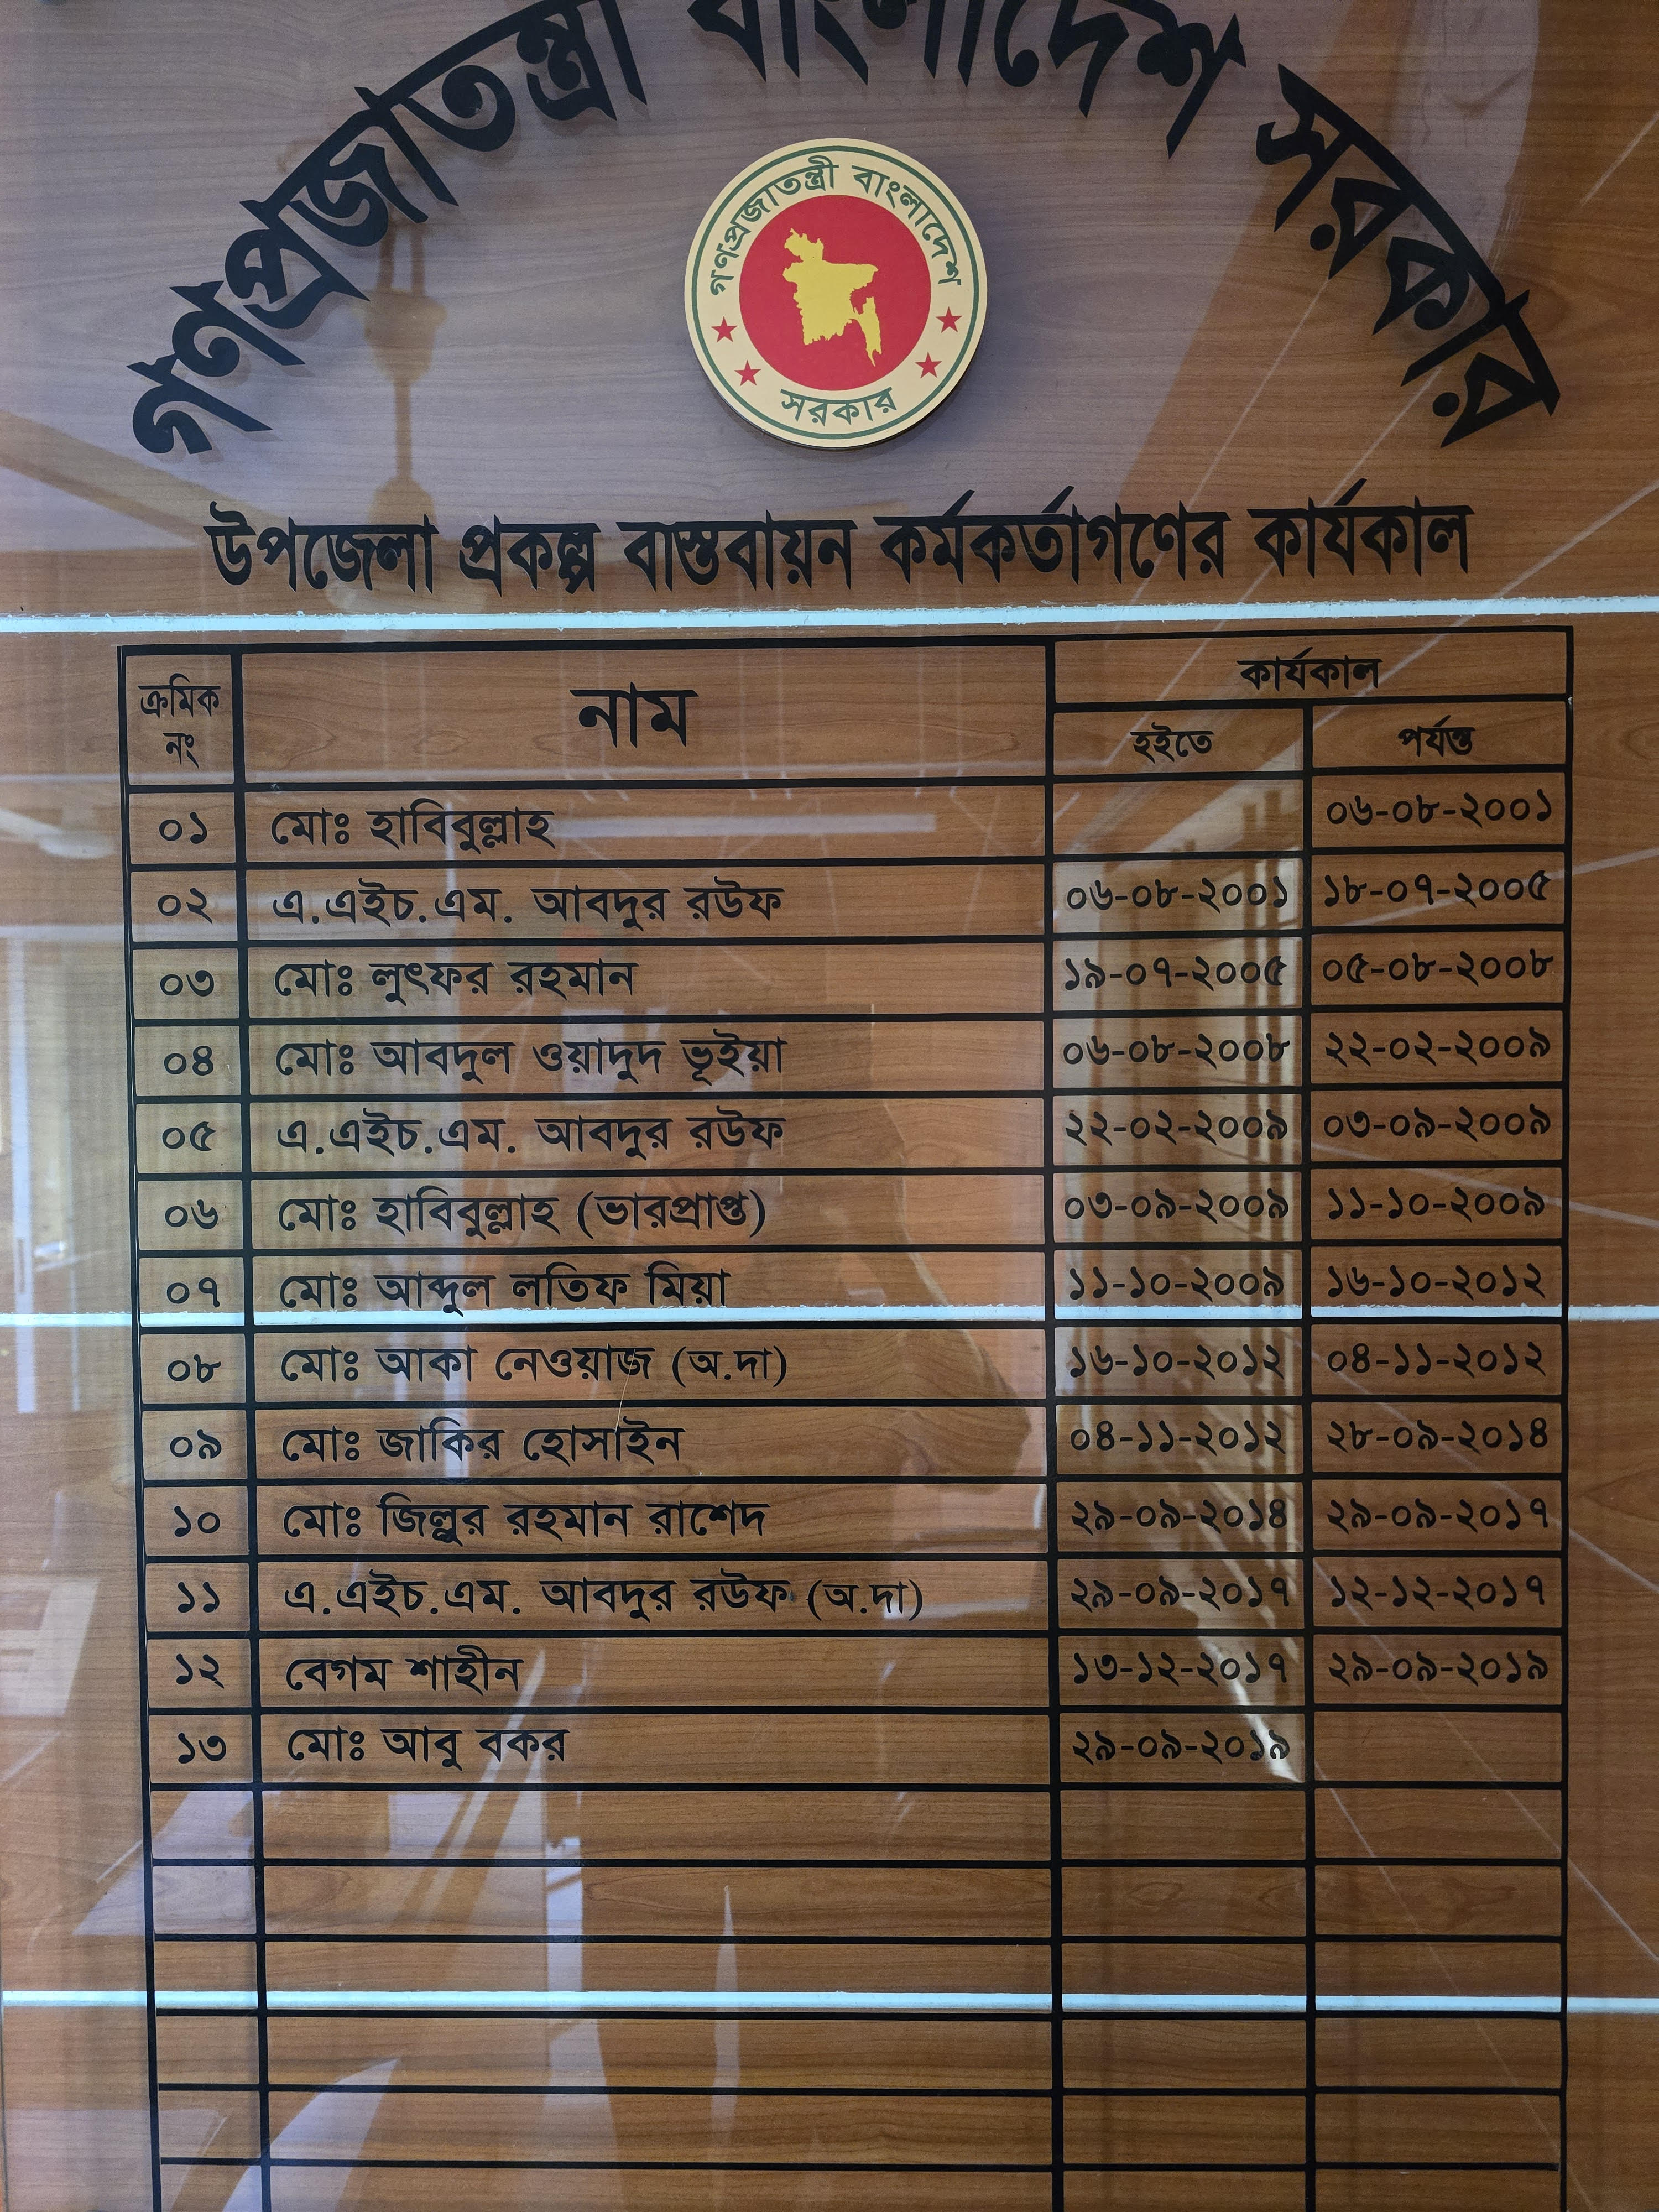 গণপ্রজাতন্ত্রী বাংলাদেশ সরকার
গণপ্রজাতন্ত্রী বাংলাদেশ
সরকার
উপজেলা প্রকল্প বাস্তবায়ন কর্মকর্তাগণের কার্যকাল
ক্রমিক নং নাম কার্যকাল
হইতে পর্যন্ত
০১ মোঃ হাবিবুল্লাহ ০৬-০৮-২০০১
০২ এ.এইচ.এম. আবদুর রউফ ০৬-০৮-২০০১ ১৮-০৭-২০০৫
০৩ মোঃ লুৎফর রহমান ১৯-০৭-২০০৫ ০৫-০৮-২০০৮
০৪ মোঃ আবদুল ওয়াদুদ ভূইয়া ০৬-০৮-২০০৮ ২২-০২-২০০৯
০৫ এ.এইচ.এম. আবদুর রউফ ২২-০২-২০০৯ ০৩-০৯-২০০৯
০৬ মোঃ হাবিবুল্লাহ (ভারপ্রাপ্ত) ০৩-০৯-২০০৯ ১১-১০-২০০৯
০৭ মোঃ আব্দুল লতিফ মিয়া ১১-১০-২০০৯ ১৬-১০-২০১২
০৮ মোঃ আকা নেওয়াজ (অ.দা) ১৬-১০-২০১২ ০৪-১১-২০১২
০৯ মোঃ জাকির হোসাইন ০৪-১১-২০১২ ২৮-০৯-২০১৪
১০ মোঃ জিল্লুর রহমান রাশেদ ২৯-০৯-২০১৪ ২৯-০৯-২০১৭
১১ এ.এইচ.এম. আবদুর রউফ (অ.দা) ২৯-০৯-২০১৭ ১২-১২-২০১৭
১২ বেগম শাহীন ১৩-১২-২০১৭ ২৯-০৯-২০১৯
১৩ মোঃ আবু বকর ২৯-০৯-২০১৯